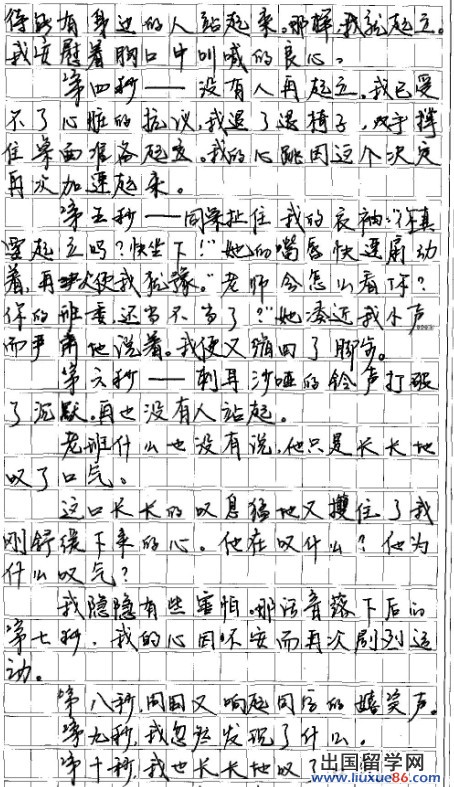 待所有身边的人站起来。那样,我就起立。
我安慰着胸口中叫喊的良心。
第四秒——没有人再起立。我已受
不了心脏的抗议。我退了退椅子,双手撑
住桌面准备起立。我的心跳因这个决定
再次加速起来。
第五秒——同桌扯住我的衣袖:“你真
要起立吗?快坐下!”她的嘴唇快速扇动
着,再次使我犹豫。“老师会怎么看你?
你的班委还当不当了?”她凑近我小声
而严肃地说着。我便又缩回了脚步。
第六秒——刺耳沙哑的铃声打破
了沉默。再也没有人站起。
老班什么也没有说,他只是长长地
叹了口气。
这口长长的叹息猛地又攫住了我
刚舒缓下来的心。他在叹什么?他为
什么叹气?
我隐隐有些害怕。那话音落下后的
第七秒,我的心因不安而再次剧烈运
动。
第八秒,周围又响起同伴的嬉笑声。
第九秒,我忽然发现了什么。
第十秒,我也长长地叹了
出国留学网
www.liuxue86.com